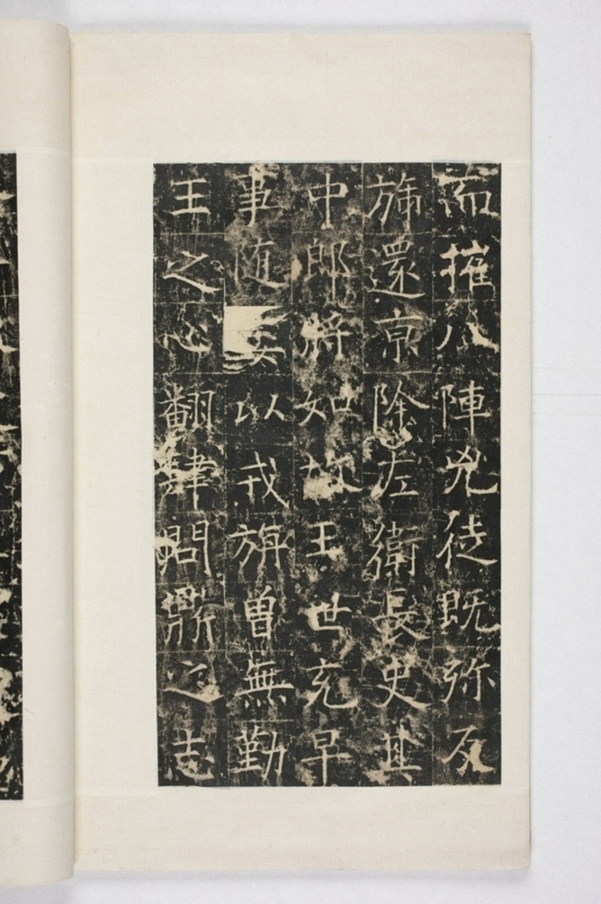 而摧八陣兇徒既弥反
斾還京除左衛長史其
中郎将如故王世充早
事随以戎旗曽無勤
王之心翻肆問鼎之志